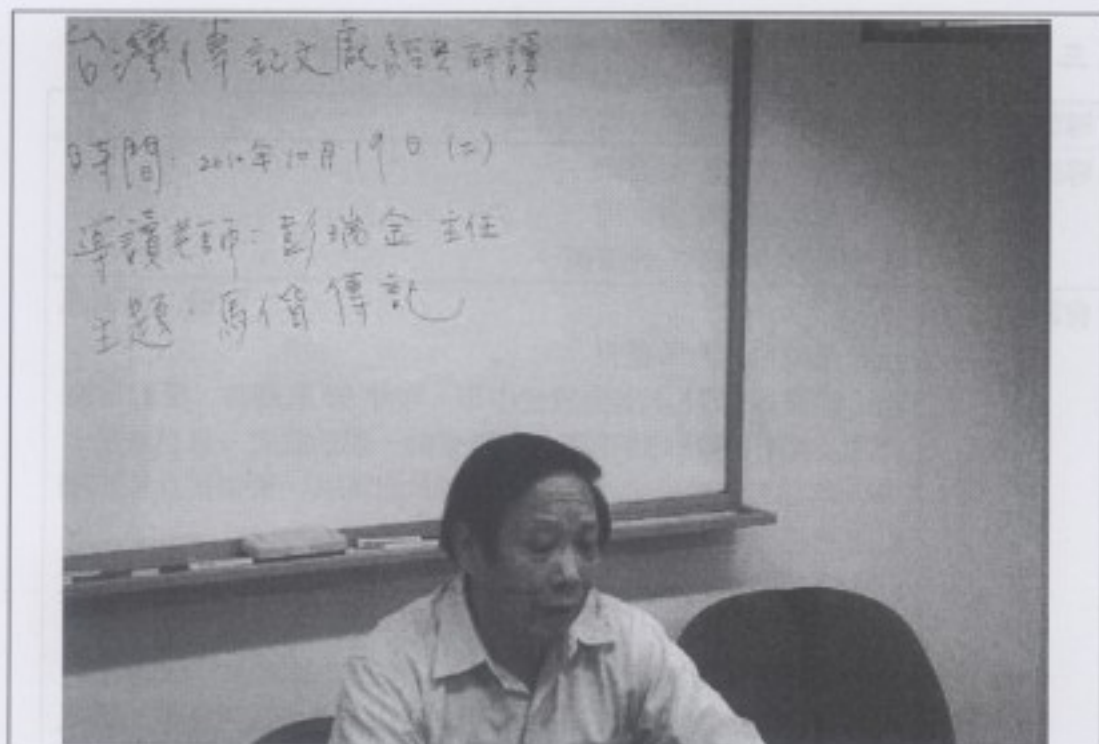 台灣傳記文獻經典研讀
時間：2010年10月19日(二)
導讀老師：彭瑞金 主任
主題：馬偕傳記